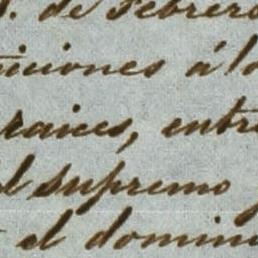 . de Febrero
iciones á lo
raices, entre
l supremo
el domin